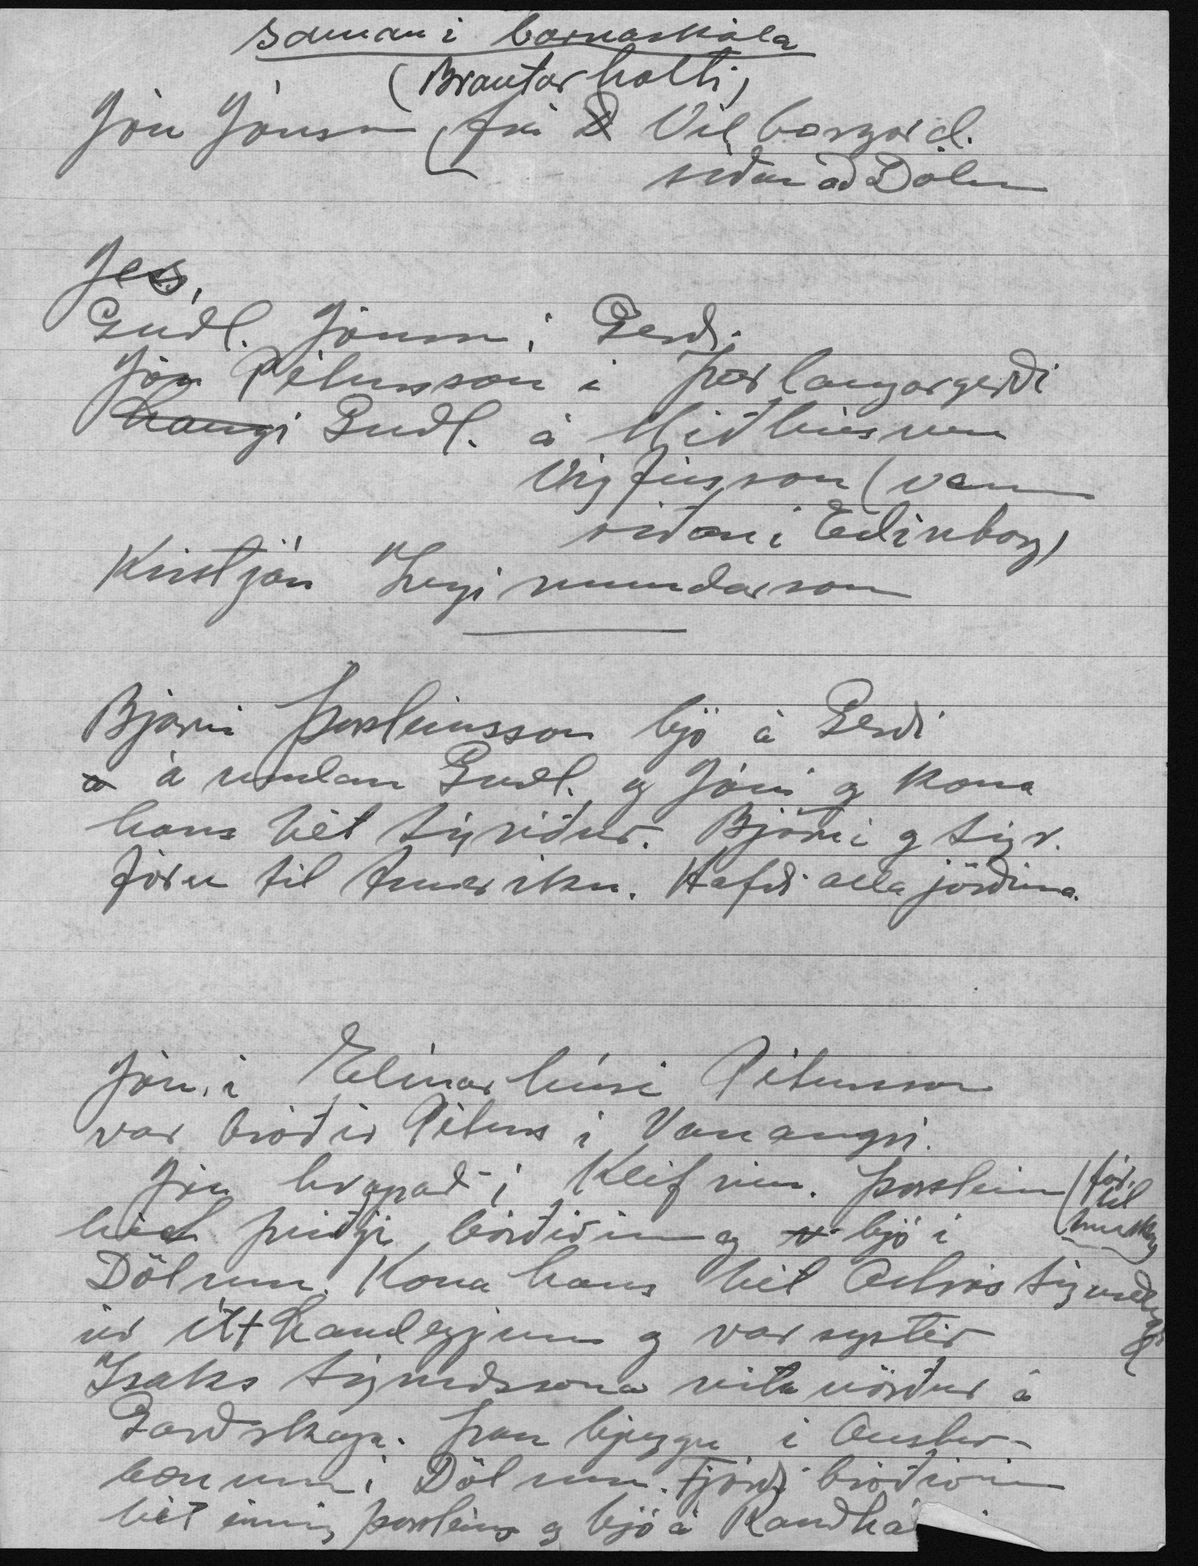 Saman í barnaskóla
(Brautarholti)
Jón Jónsson (frá Vilborgarst.
síðan að Dölum
Jes,
Guðl. Jónsson, Gerði.
Jón Pétursson í Þorlaugargerði
hangi Guðl. á Miðhúsum
Vigfússon (var
síðan í Edinborg)
Kristján Ingimundarson
Bjarni Þorsteinsson bjó á Gerði
á undan Guðl. og Jóni og kona
hans hét Sigríður. Bjarni og Sigr.
fóru til Ameríku. Hafði alla jörðina.
Jón, í Elínarhúsi Pétursson
var bróðir Péturs í Vanangri.
Jón hrapaði í Klifinu. Þorsteinn (fór til Ameríku)
hét þriðji bróðirinn og bjó í
Dölum. Kona hans hét Ástrós Sigurðard.
úr Úthlandeyjum og var systir
Ísaks Sigurðssonar vitavörður á
Garðskaga. Þau bjuggu í Austur-
bænum í Dölum. Fjórði bróðirinn
hét einnig Þorsteinn og bjó á